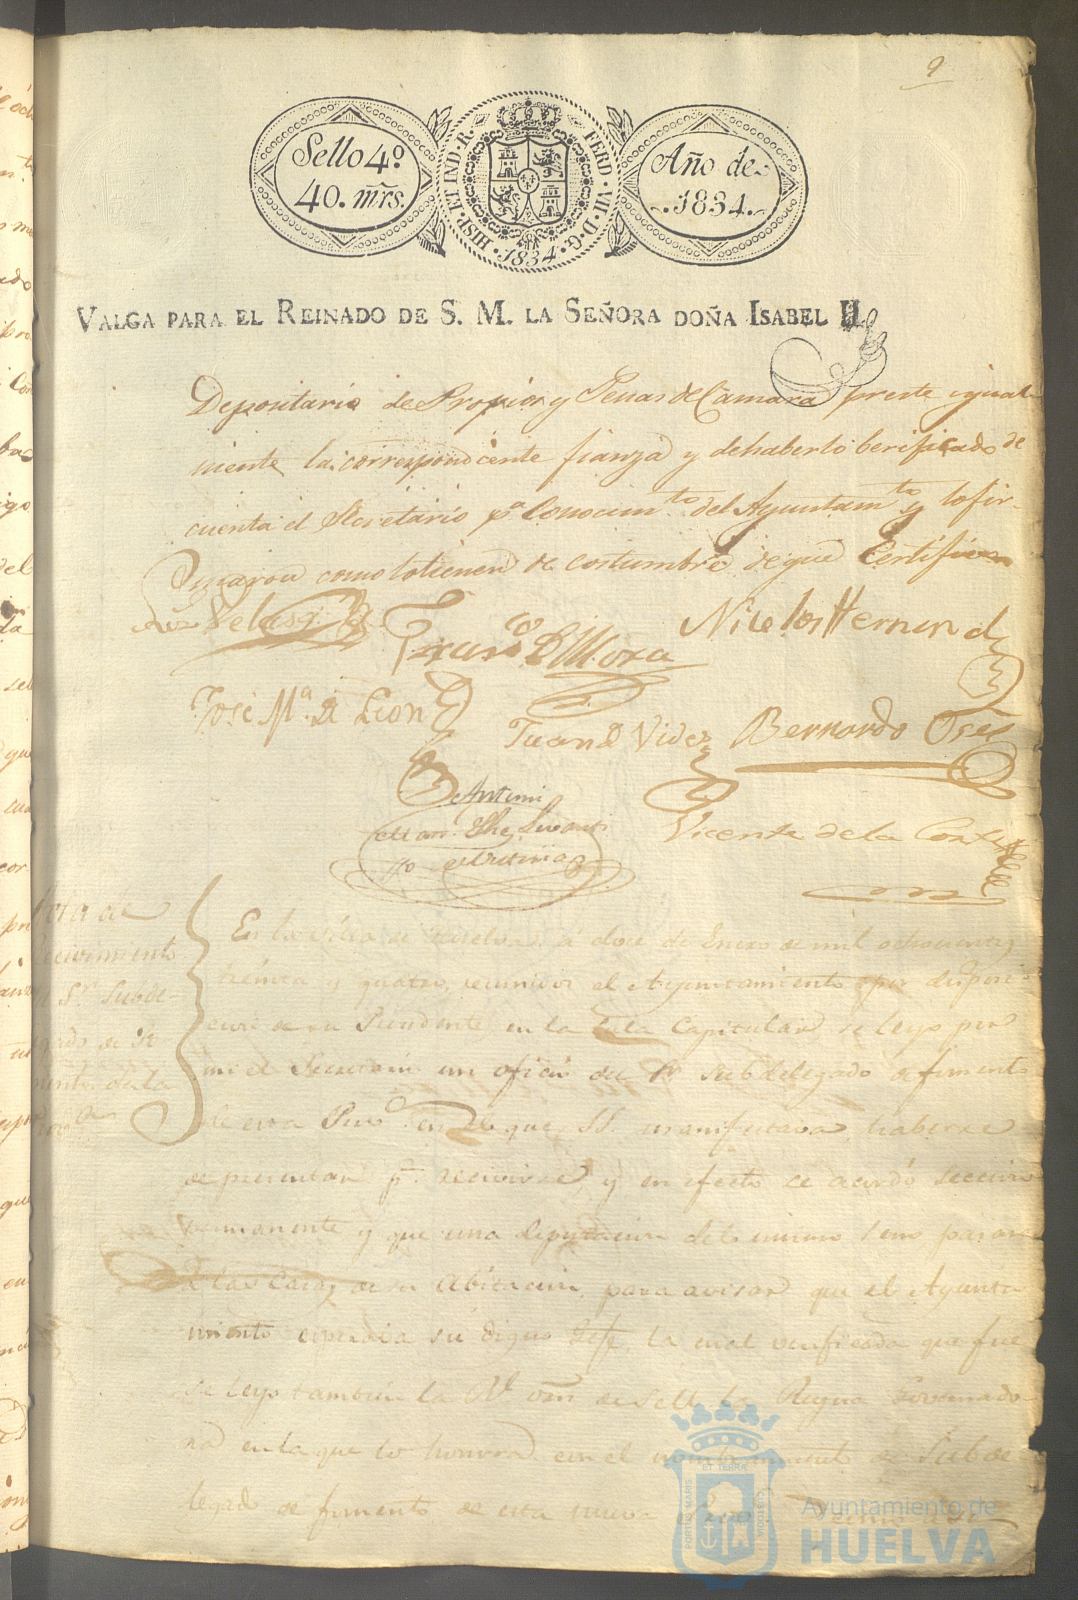 9
Sello 4º
40. mrs.
HISP. ET IND. R. FERD. VII. D. G. 1834.
Año de
1834.
VALGA PARA EL REINADO DE S. M. LA SEÑORA DOÑA ISABEL II.
Depositario de Propios y Penas de Camara preste igual-
mente la correspondiente fianza y dehaberlo berificado de
cuenta el Secretario pª Conocimto del Ayuntamto y lo fir-
maron como lo tienen de costumbre de que Certifico
Velasq
Franco D Mora
Nicolas Hernand
José Mª D Leon
Juan D Vides
Bernardo
Antemi
Vicente de la Corte
de
Recivimiento
Sr Subde-
de la
En la villa de Huelva á doce de Enero de mil ochocientos
treinta y quatro, reunidos el Ayuntamiento por disposi-
cion de su Presidente en la Sala Capitular se leyo por
mi el Secretario un oficio del Sr Subdelegado de fomento
de esta en el que SS. manifestava haberse
de presentar pª recivirse, y en efecto se acordó
permanente y que una diputacion del mismo seno pasara
á las Casas de su Abitacion, para avisar que el Ayunta
miento esperava su digno Gefe, la cual verificada que fue
se leyo tambien la Rl orn de S M la Reyna Governado
ra en la que lo honrra con el nombramiento de Subde-
legado de fomento de esta nueva
PORTUS MARIS ET TERRAE CUSTODIA
Ayuntamiento de
HUELVA